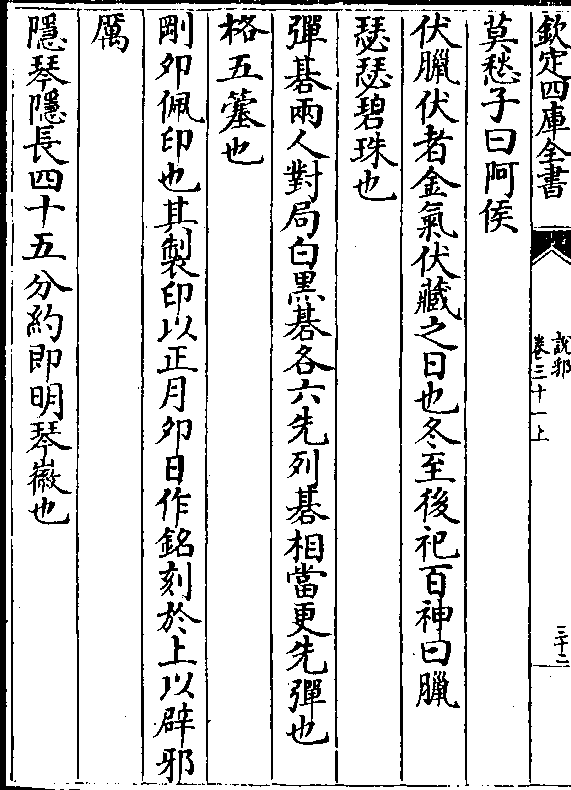 欽定四庫全書
說郛
卷三十一上
三十二
莫愁子曰阿侯
伏臘伏者金氣伏藏之日也冬至後祀百神曰臘
瑟瑟碧珠也
彈碁兩人對局白黒碁各六先列碁相當更先彈也
格五簺也
剛卯佩印也其製印以正月卯日作銘刻於上以辟邪
厲
隱琴隱長四十五分約即明琴徽也